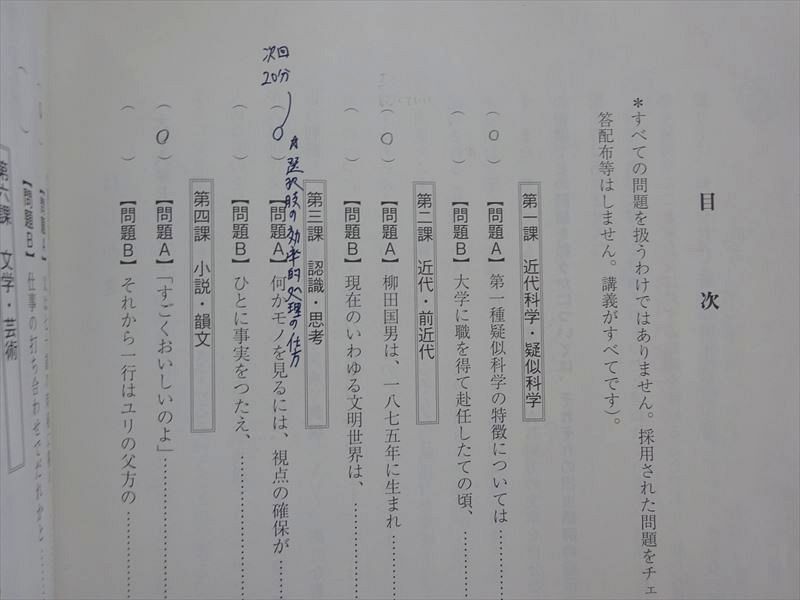 目 次
*すべての問題を扱うわけではありません。採用された問題をチェ
答配布等はしません。講義がすべてです)。
第一課 近代科学・疑似科学
( ○ )【問題A】第一種疑似科学の特徴については………
( )【問題B】大学に職を得て赴任したての頃、………
第二課 近代・前近代
( ○ )【問題A】柳田国男は、一八七五年に生まれ………
( )【問題B】現在のいわゆる文明世界は、………
第三課 認識・思考
次回
20分
選択肢の効率的処理の仕方
( ○ )【問題A】何かモノを見るには、視点の確保が………
( )【問題B】ひとに事実をつたえ、………
第四課 小説・韻文
( ○ )【問題A】「すごくおいしいのよ」………
( )【問題B】それから一行はユリの父方の………
【問題B】仕事の打ち合わせでだれかと……
第六課 文学・芸術